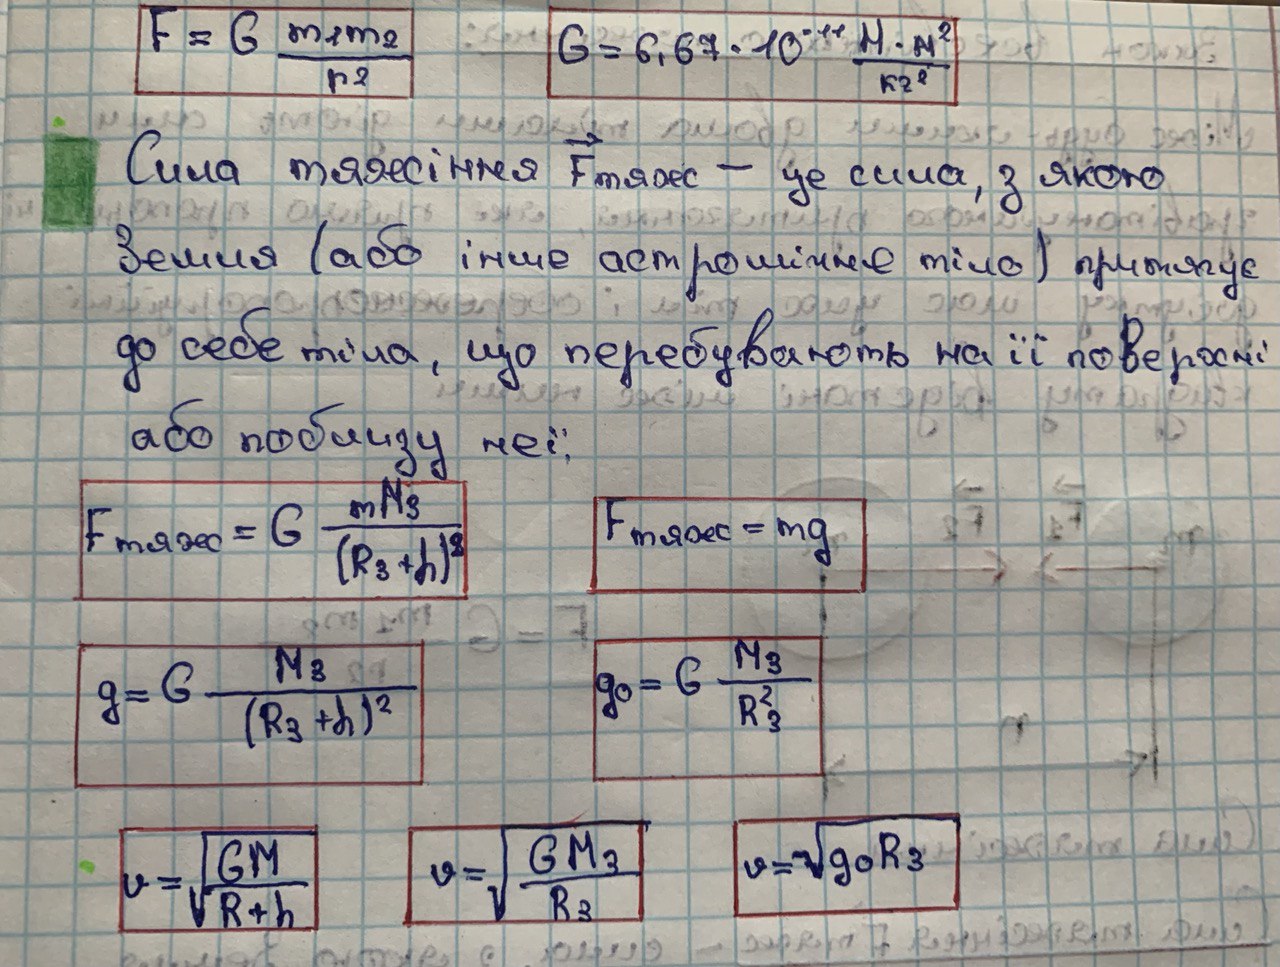 F = G m₁m₂/r² G = 6,67 · 10⁻¹¹ Н · м²/кг²
Сила тяжіння F⃗тяж – це сила, з якою
Земля (або інше астромічне тіло) притягує
до себе тіла, що перебувають на її поверхні
або поблизу неї:
Fтяж = G mMз/(Rз+h)² Fтяж = mg
g = G Mз/(Rз+h)² g₀ = G Mз/Rз²
v = √(GM/(R+h)) v = √(GMз/Rз) v = √(g₀Rз)